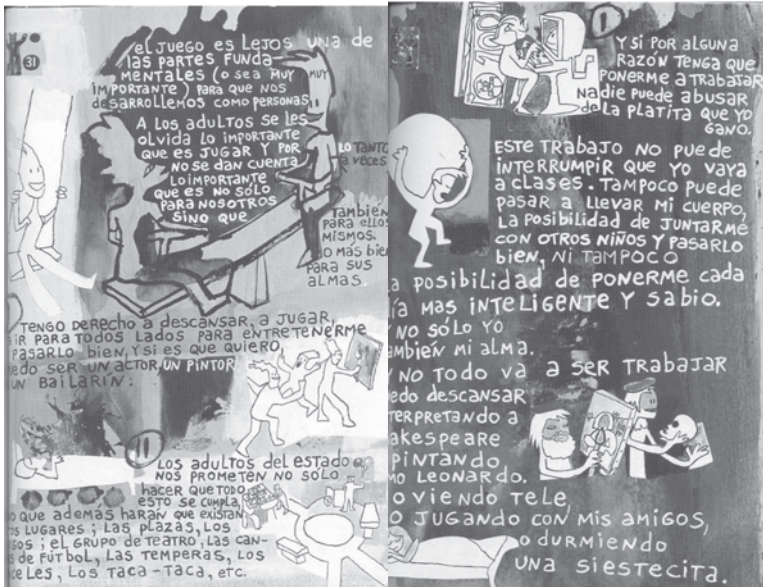 31
el JUEGO es LEJOS una de
las PARTES FUNDA-
MENTALES (o sea MUY MUY
IMPORTANTE) PARA QUE NOS
desarrollemos como personas
A LOS ADULTOS SE LES
OLVIDA LO IMPORTANTE
QUE ES JUGAR Y POR LO TANTO
NO SE DAN CUENTA a veces
LO IMPORTANTE
QUE ES NO SÓLO
PARA NOSOTROS
SINO QUE
TAMBIÉN
PARA ELLOS
MISMOS.
O MAS BIEN
PARA SUS
ALMAS
TENGO DERECHO A DESCANSAR, A JUGAR,
IR PARA TODOS LADOS PARA ENTRETENERME
PASARLO BIEN, Y SI ES QUE QUIERO,
SER UN ACTOR, UN PINTOR
UN BAILARÍN.
11
LOS ADULTOS DEL ESTADO
NOS PROMETEN NO SÓLO
HACER QUE TODO
ESTO SE CUMPLA,
QUE ADEMÁS HARÁN QUE EXISTAN
LUGARES; LAS PLAZAS, LOS
; EL GRUPO DE TEATRO, LAS CAN-
DE FÚTBOL, LAS TEMPERAS, LOS
, LOS TACA-TACA, ETC.
1
Y SI POR ALGUNA
RAZÓN TENGA QUE
PONERME A TRABAJAR
NADIE PUEDE ABUSAR
de LA PLATITA QUE YO
GANO.
ESTE TRABAJO NO PUEDE
INTERRUMPIR QUE YO VAYA
A CLASES. TAMPOCO PUEDE
PASAR A LLEVAR MI CUERPO,
LA POSIBILIDAD DE JUNTARME
CON OTROS NIÑOS Y PASARLO
BIEN, NI TAMPOCO
POSIBILIDAD de PONERME cada
MAS INTELIGENTE Y SABIO.
NO SÓLO YO
MI ALMA.
NO TODO VA A SER TRABAJAR
DESCANSAR
A
PINTANDO
LEONARDO.
O VIENDO TELE,
O JUGANDO CON MIS AMIGOS,
O DURMIENDO
UNA SIESTECITA.